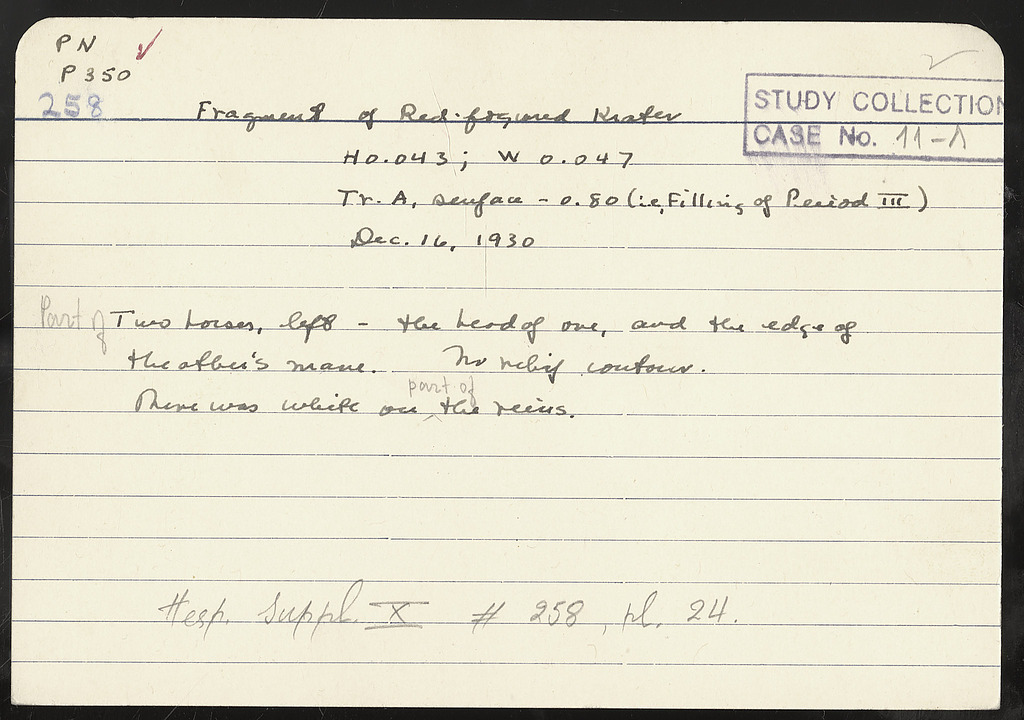 PN
P 350
258
STUDY COLLECTION
CASE No. 11-A
Fragment of Red-figured Krater
H 0.043; W 0.047
Tr. A, surface - 0.80 (i.e, Filling of Period III)
Dec. 16, 1930
Part of Two horses, left - the head of one, and the edge of
the other's mane. No relief contour.
There was white on part of the reins.
Hesp. Suppl. X # 258, pl. 24.